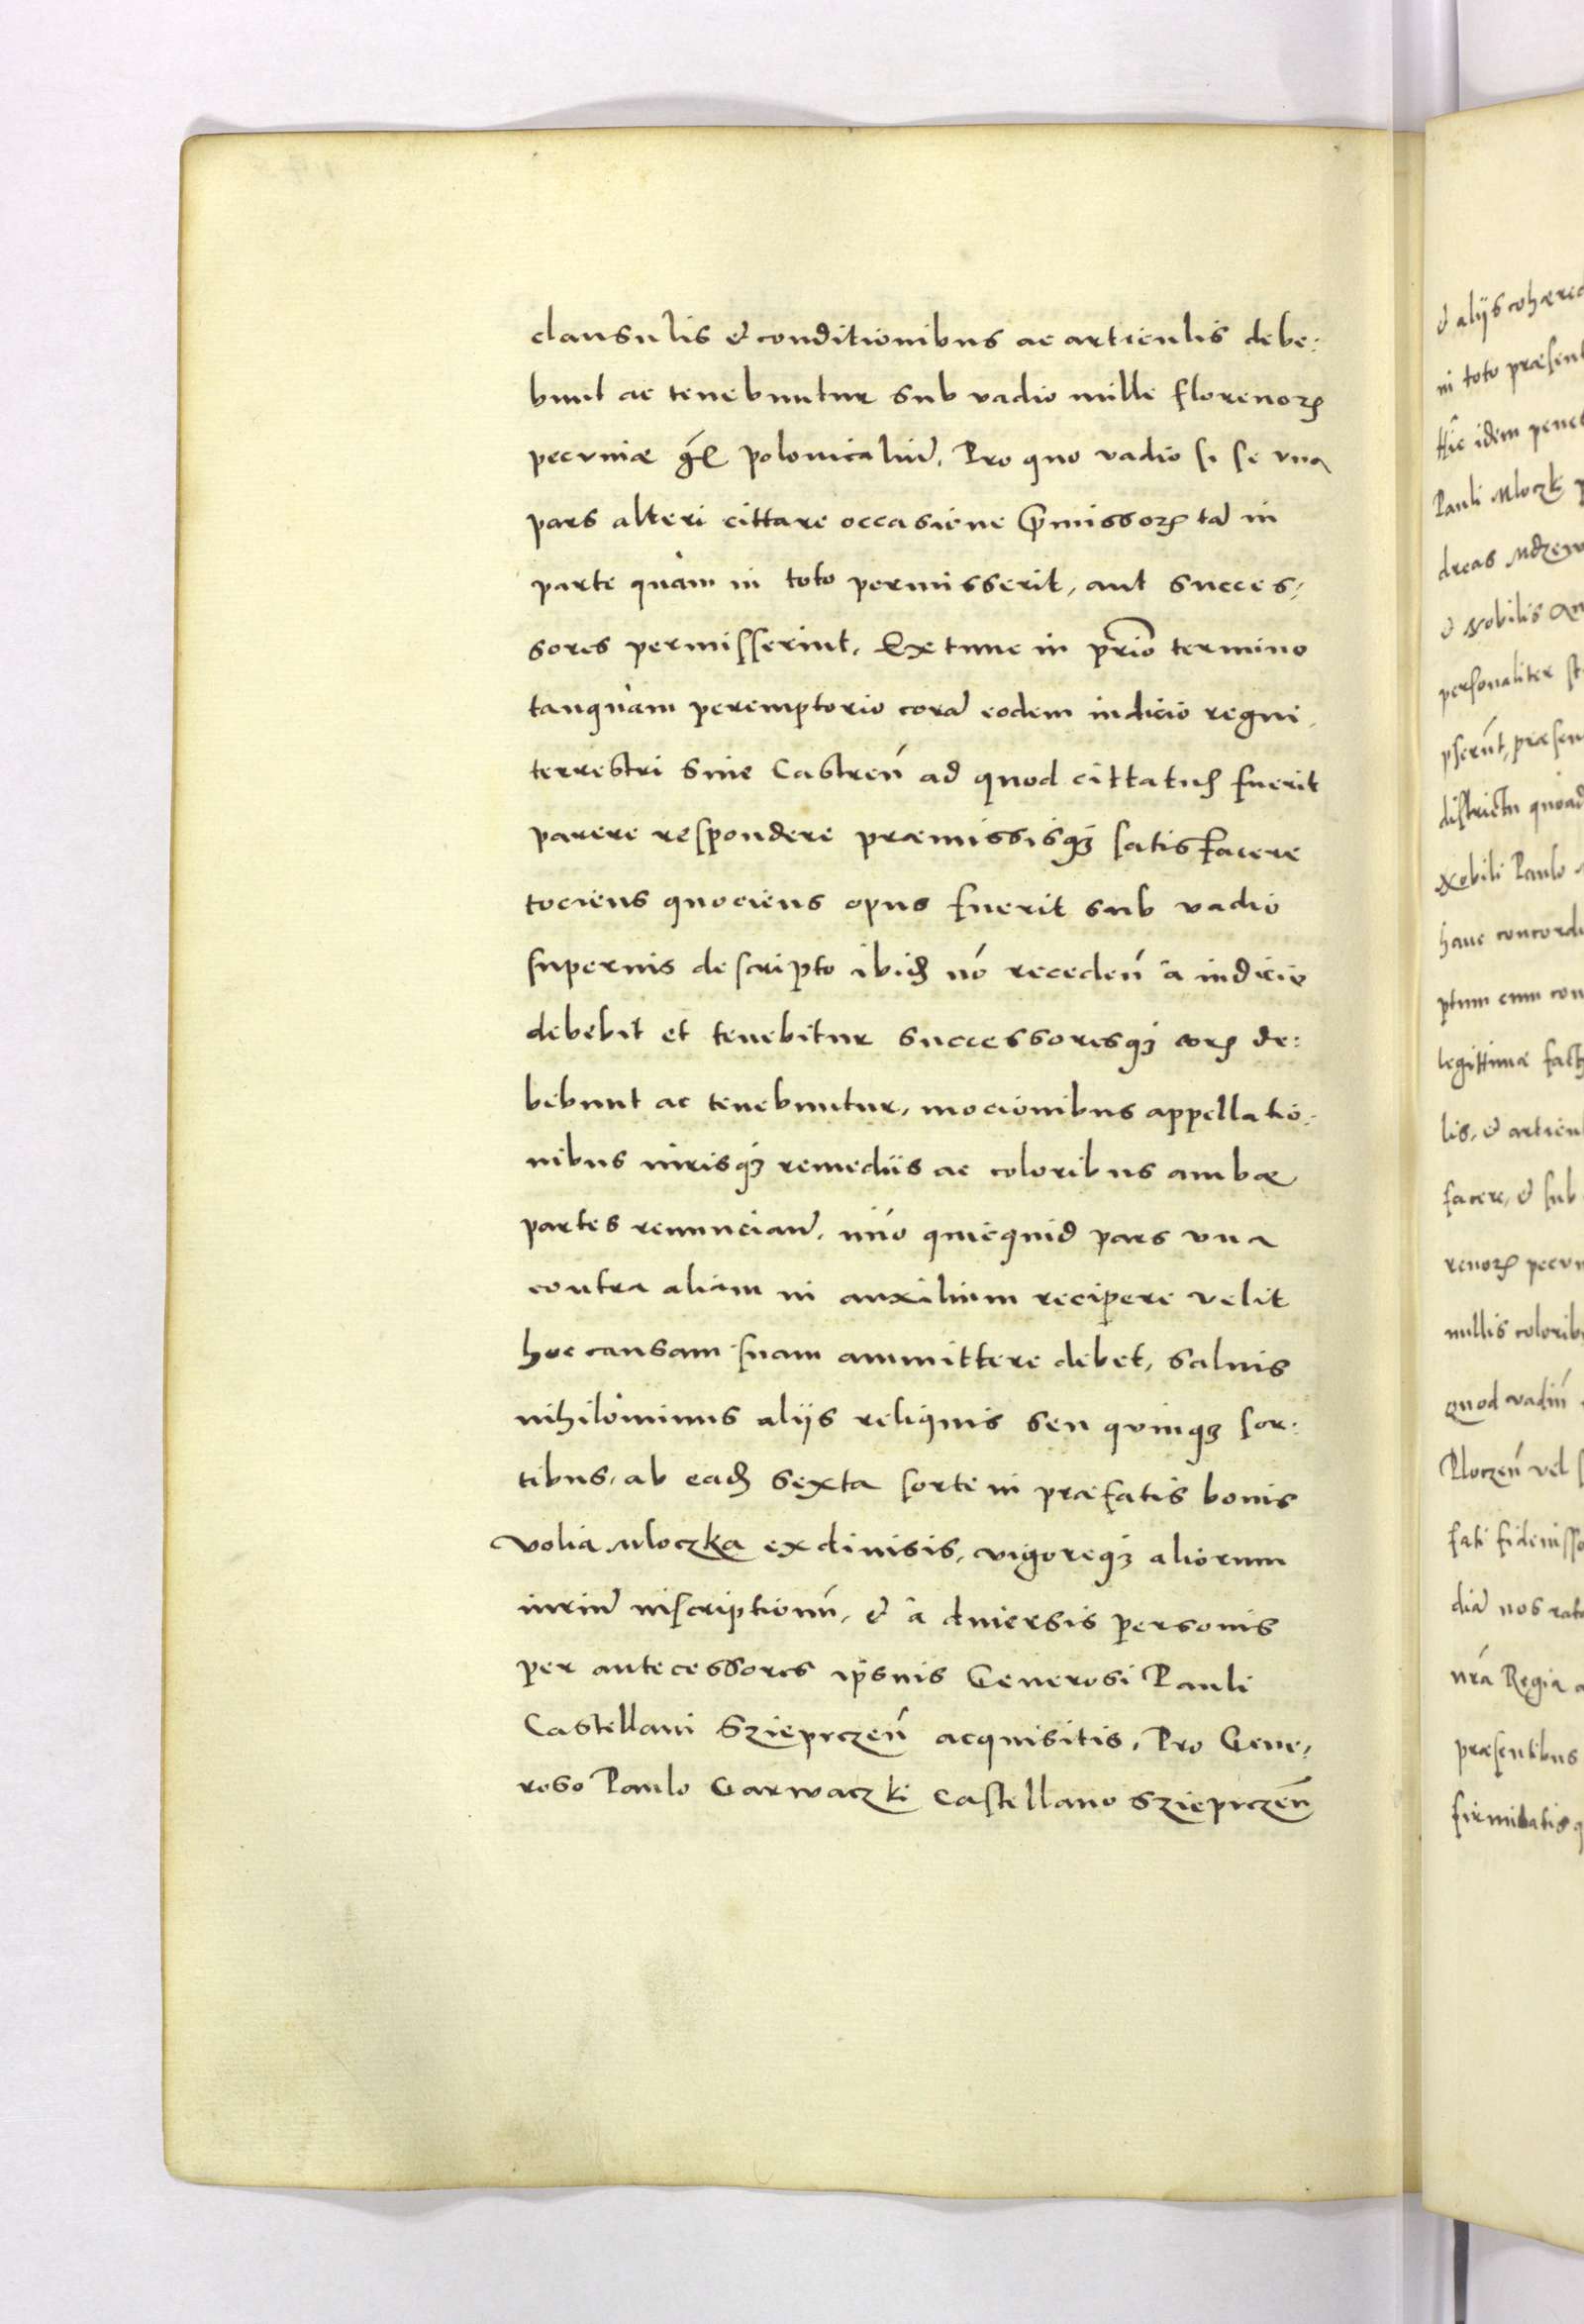 clausulis & conditionibus ac articulis debe:
bunt ac tenebuntur sub vadio mille florenorꝝ
pecuniæ polonicaliũ. Pro quo vadio si se vna
pars alteri cittare occasione p̃missorꝝ tã in
parte quàm in toto permisserit, aut succes,
sores permisserint. Ex tunc in prio termino
tanquàm peremptorio corã eodem iudicio regni,
terrestri siue Castreñ ad quod cittatus fuerit
parere respondere præmissisqȝ satisfacere
tociens quociens opus fuerit sub vadio
superius descripto ibidẽ nõ recedeñ à iudicio
debebit et tenebitur successoresqȝ eorꝝ de:
bebunt ac tenebuntur, mocionibus appellatio:
nibus iurisqȝ remediis ac coloribus ambæ
partes renunciant. imo quicquid pars vna
contra aliàm in auxilium recipere velit
hoc causam suam ammittere debet, saluis
nihilominus alijs reliquis seu quinqȝ sor:
tibus, ab eadẽ sexta sorte in præfatis bonis
Volia Mloczka ex diuisis, vigoreqȝ aliorum
iuriũ inscriptionũ, & à diuersis personis
per antecessores ipsius Generosi Pauli
Castellani Szieprczeñ acquisitis, Pro Gene,
roso Paulo Garwaczki Castellano Szieprczeñ
& alijs cohæred
in toto præsent
Hic idem penes
Pauli Mloczk p
dreas Mdzew
& Nobilis An
personaliter st
pserũt, præsen
districtu quoad
Nobili Paulo
hanc concordi
ptum cum con
legittimæ fact
lis, & articul
facere, & sub
renorꝝ pecun
nullis colorib
quod vadiũ
Ploczeñ vel
fati fideiusso
diã nos rat
nrã Regia a
præsentibus
firmitatis q